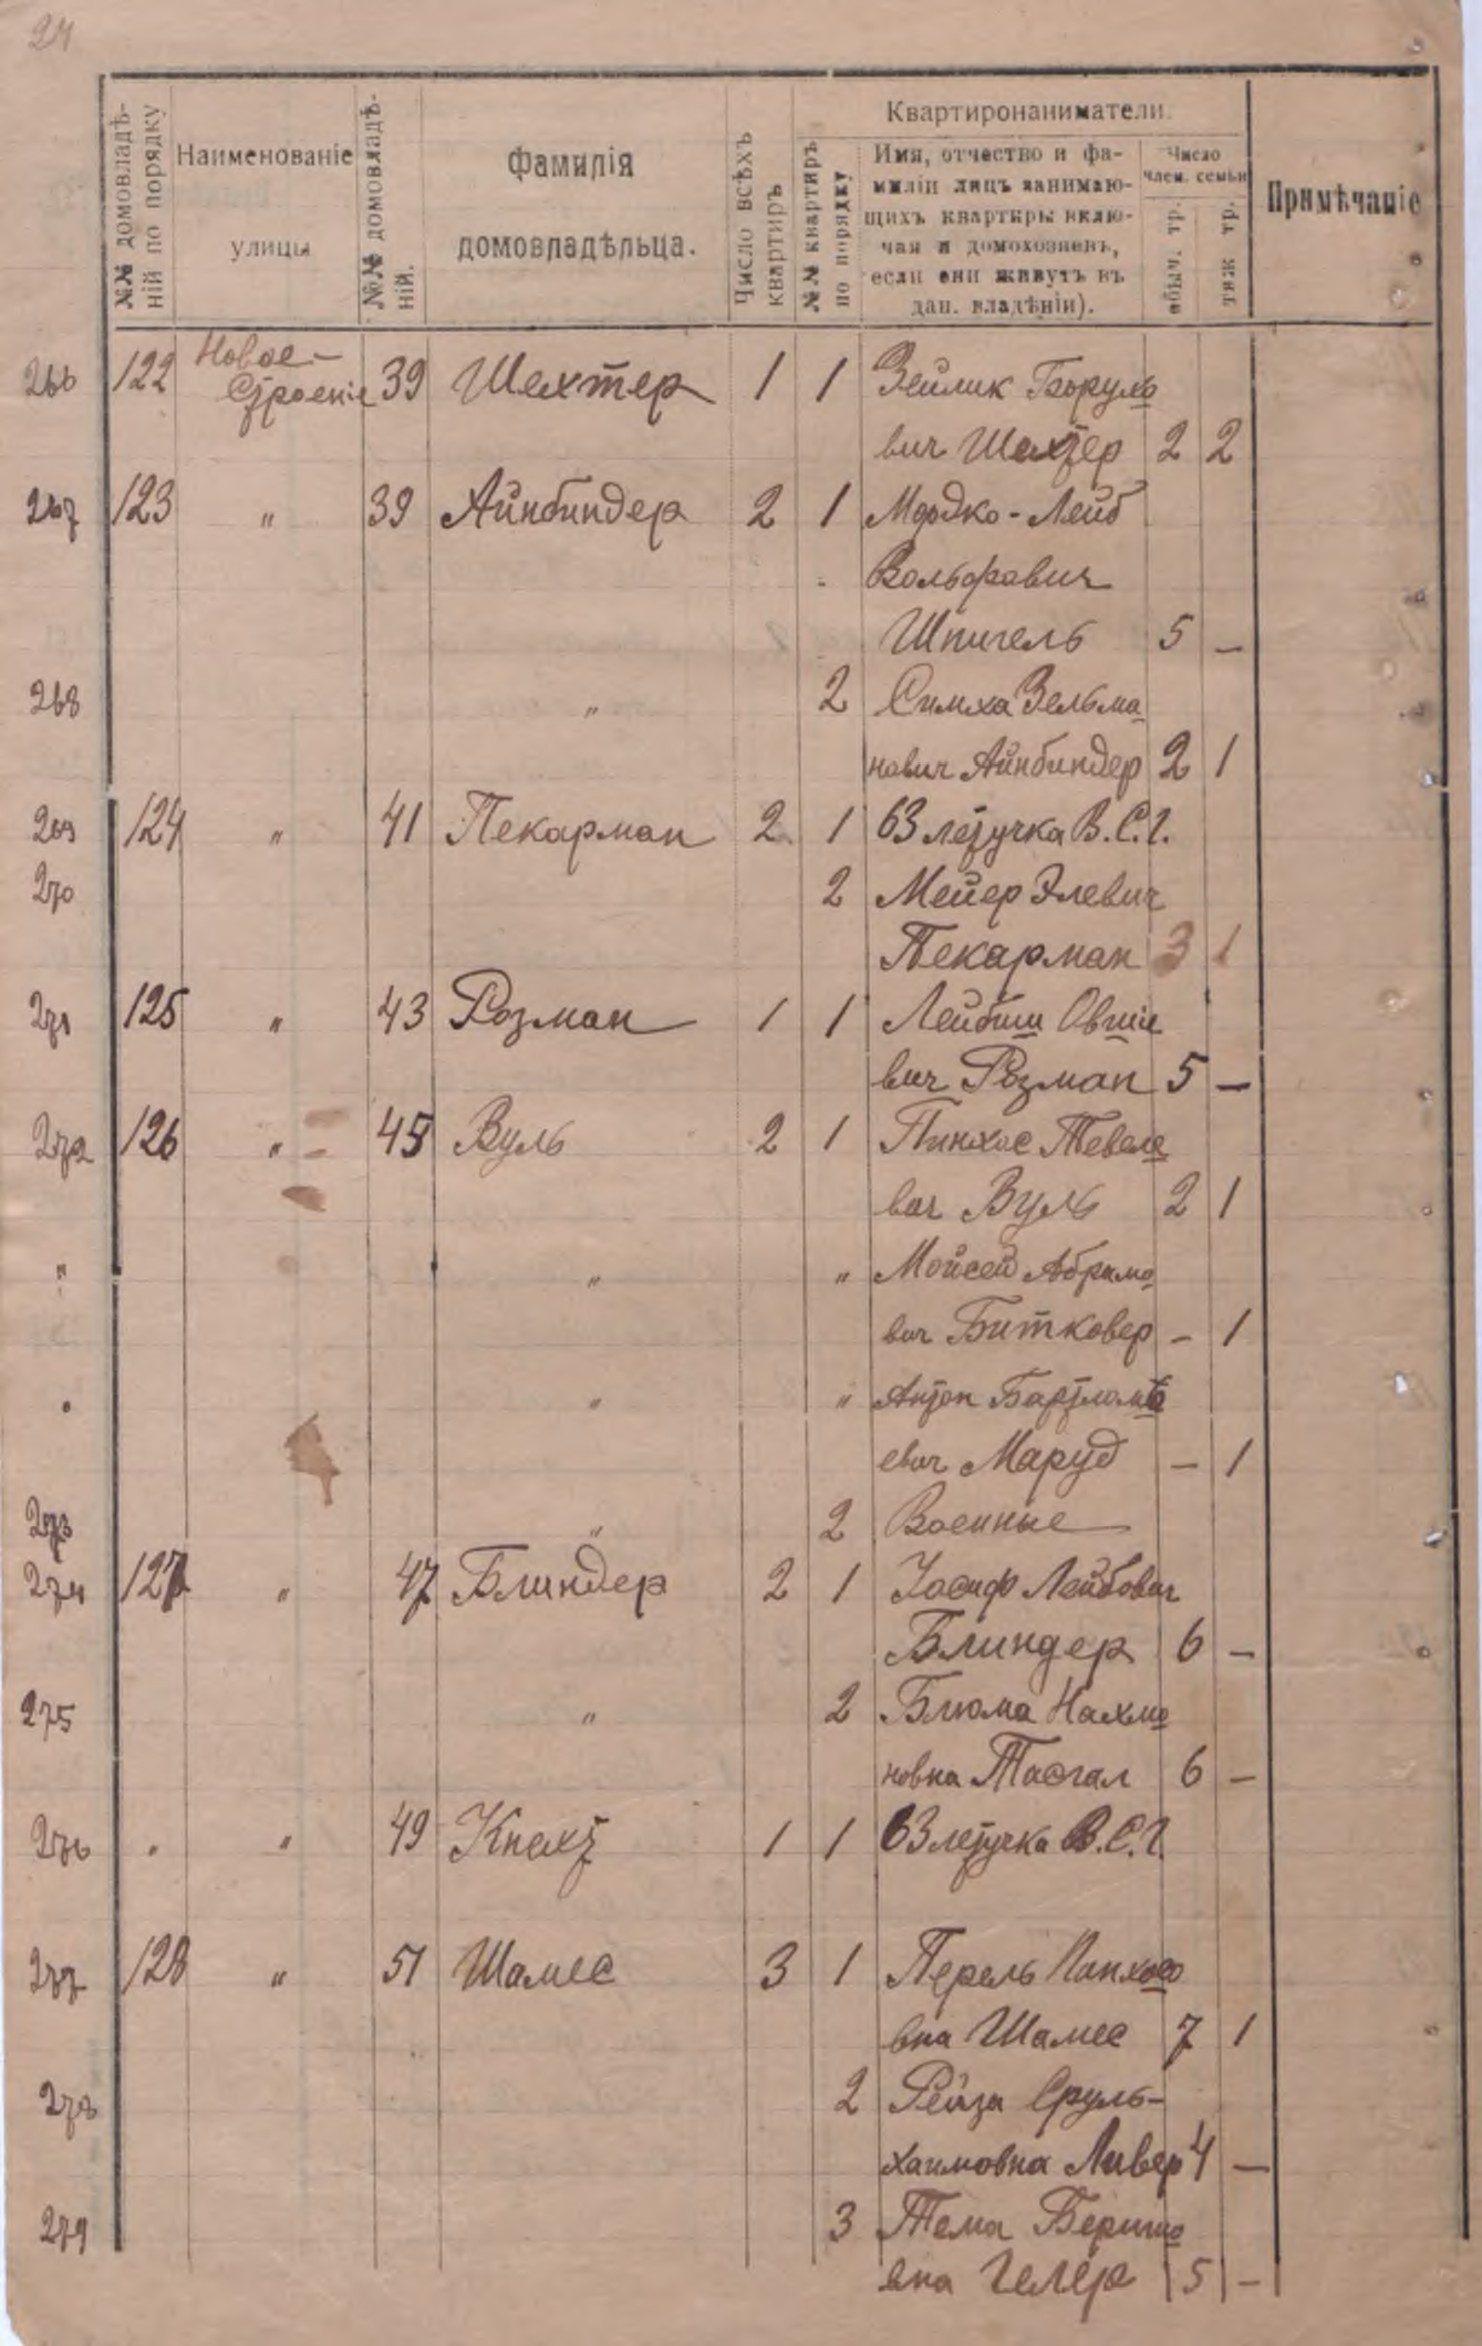 24
№№ домовладѣ-
ній по порядку
Наименованіе
улицы
№№ домовладѣ-
ній.
Фамилія
домовладѣльца.
Число всѣхъ
квартиръ
Квартиронаниматели.
№№ квартиръ
по порядку
Имя, отчество и фа-
миліи лицъ занимаю-
щихъ квартиры вклю-
чая и домохозяевъ,
если они живутъ въ
дан. владѣніи).
Число
член. семьи
обыч. тр.
тяж тр.
Примѣчаніе
266 122 Новое-
Строеніе 39 Шехтер 1 1 Зейлик Борухо
вич Шехтер 2 2
267 123 " 39 Айнбиндер 2 1 Мордко-Лейб
Вольфович
Шпигель 5 —
268 " 2 Симха Зельма
нович Айнбиндер 2 1
269 124 " 41 Пекарман 2 1 63 летучка В.С.Г.
270 2 Мейер Элевич
Пекарман 3 1
271 125 " 43 Розман 1 1 Лейбиш Овшіе
вич Розман 5 —
272 126 " 45 Вуль 2 1 Пинхос Тевеле
вич Вуль 2 1
" " " Мойсей Абрамо
вич Битковер — 1
" " Антон Бартломѣ
евич Маруд — 1
273 " 2 Военные
274 127 " 47 Блиндер 2 1 Іосиф Лейбович
Блиндер 6 —
275 " 2 Блюма Нахма
новна Тасгал 6 —
276 " " 49 Кнехт 1 1 63 летучка В.С.Г.
277 128 " 51 Шамес 3 1 Перель Пинхосо
вна Шамес 7 1
278 2 Рейза Сруль-
Хаимовна Ливер 4 —
279 3 Тема Беришо
вна Гелер 5 —